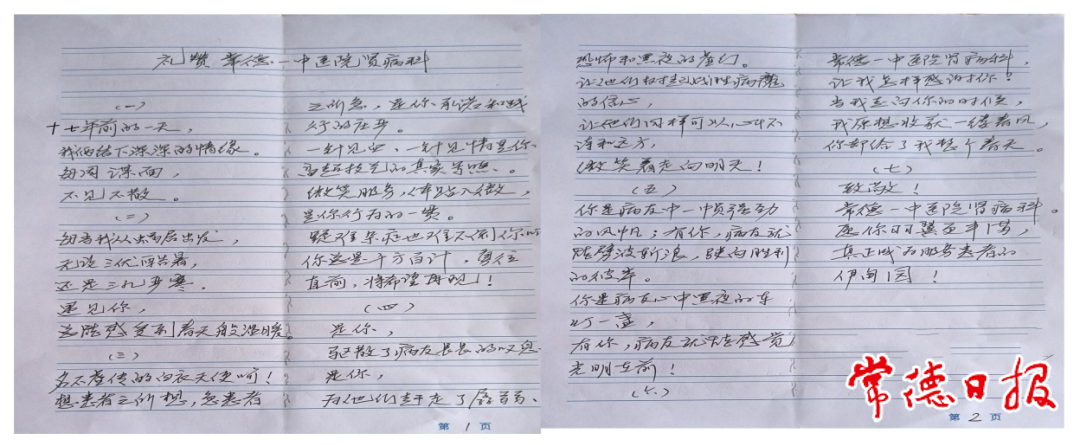 礼赞常德一中医院肾病科
（一）
十七年前的一天，
我们结下深深的情缘。
每周谋面，
不见不散。
（二）
每当我从蜗居出发，
无论三伏酷暑，
还是三九严寒。
遇见你，
总能感受到春天般温暖。
（三）
名不虚传的白衣天使啊！
想患者之所想，急患者
之所急，是你承诺和践
行的往步。
一针见血、一针见情是你
高超技艺的真实写照。
微笑服务，体贴入微，
是你行为的一贯。
疑难杂症也难不倒你的
你总是千方百计，勇往
直前，将希望再现！
（四）
是你，
驱散了病友长长的叹息
是你，
为他们赶走了孱弱、
第 1 页
恐怖和黑夜的
让他们树起战胜病魔
的信心，
让他们同样可以心中不
远方，
微笑着走向明天！
（五）
你是病友中一帧强劲
的风帆；有你，病友就
能劈波斩浪，驶向胜利
的彼岸。
你是病友心中黑夜的
灯一盏，
有你，病友就能感觉
光明在前！
（六）
常德一中医院肾病科，
让我怎样感谢你！
当我走向你的时候，
我原想收获一缕春风，
你却给了我整个春天。
（七）
致敬！
常德一中医院肾病科。
愿你羽翼至丰满，
真正成为服务患者的
伊甸园！
第 2 页
常德日报